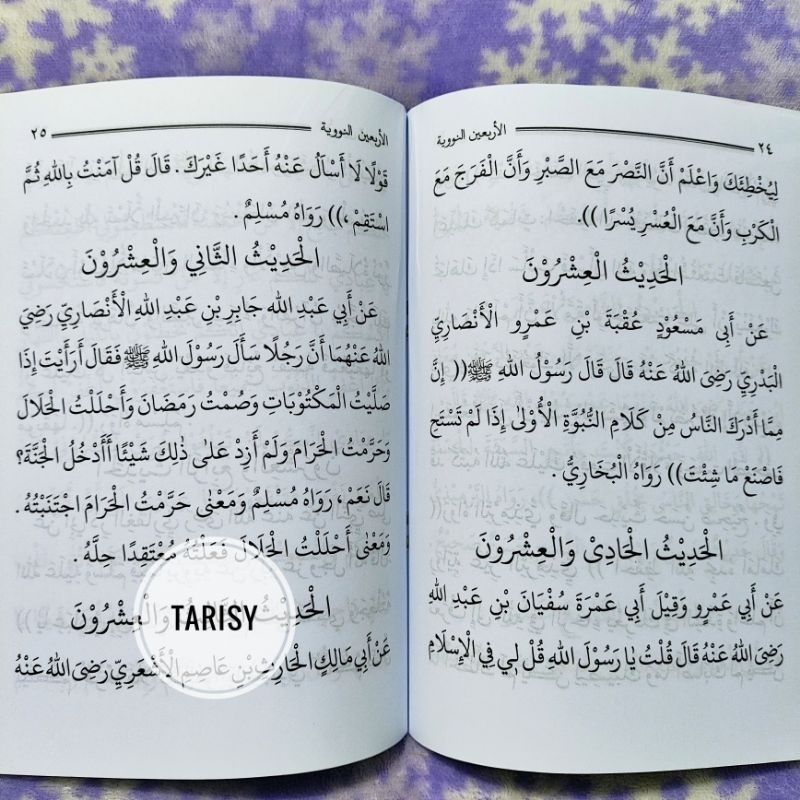 ٢٤ الأربعين النووية
لِيُخْطِئَكَ وَاعْلَمْ أَنَّ النَّصْرَ مَعَ الصَّبْرِ وَأَنَّ الْفَرَجَ مَعَ
الْكَرْبِ وَأَنَّ مَعَ الْعُسْرِ يُسْرًا )).
الْحَدِيْثُ الْعِشْرُوْنَ
عَنْ أَبِى مَسْعُوْدٍ عُقْبَةَ بْنِ عَمْرٍو الْأَنْصَارِيِّ
الْبَدْرِيِّ رَضِىَ اللهُ عَنْهُ قَالَ قَالَ رَسُوْلُ اللهِ ﷺ(( إِنَّ
مِمَّا أَدْرَكَ النَّاسُ مِنْ كَلَامِ النُّبُوَّةِ الْأُوْلَى إِذَا لَمْ تَسْتَحِ
فَاصْنَعْ مَا شِئْتَ)) رَوَاهُ الْبُخَارِيُّ .
الْحَدِيْثُ الْحَادِىْ وَالْعِشْرُوْنَ
عَنْ أَبِي عَمْرٍو وَقِيْلَ أَبِي عَمْرَةَ سُفْيَانَ بْنِ عَبْدِ اللهِ
رَضِىَ اللهُ عَنْهُ قَالَ قُلْتُ يَا رَسُوْلَ اللهِ قُلْ لِي فِي الْإِسْلَامِ
الأربعين النووية ٢٥
قَوْلًا لَا أَسْأَلُ عَنْهُ أَحَدًا غَيْرَكَ . قَالَ قُلْ آمَنْتُ بِاللهِ ثُمَّ
اسْتَقِمْ ،)) رَوَاهُ مُسْلِمٌ .
الْحَدِيْثُ الثَّانِي وَالْعِشْرُوْنَ
عَنْ أَبِي عَبْدِ الله جَابِرِ بْنِ عَبْدِ اللهِ الْأَنْصَارِيِّ رَضِيَ
اللهُ عَنْهُمَا أَنَّ رَجُلًا سَأَلَ رَسُوْلَ اللهِ ﷺ فَقَالَ أَرَأَيْتَ إِذَا
صَلَّيْتُ الْمَكْتُوْبَاتِ وَصُمْتُ رَمَضَانَ وَأَحْلَلْتُ الْحَلَالَ
وَحَرَّمْتُ الْحَرَامَ وَلَمْ أَزِدْ عَلَى ذٰلِكَ شَيْئًا أَأَدْخُلُ الْجَنَّةَ؟
قَالَ نَعَمْ، رَوَاهُ مُسْلِمٌ وَمَعْنَى حَرَّمْتُ الْحَرَامَ اجْتَنَبْتُهُ .
وَمَعْنَى أَحْلَلْتُ الْحَلَالَ فَعَلْتُهُ مُعْتَقِدًا حِلَّهُ .
الْحَدِيْثُ الثَّالِثُ وَالْعِشْرُوْنَ
عَنْ أَبِي مَالِكٍ الْحَارِثِ بْنِ عَاصِمٍ الْأَشْعَرِيِّ رَضِىَ اللهُ عَنْهُ
TARISY